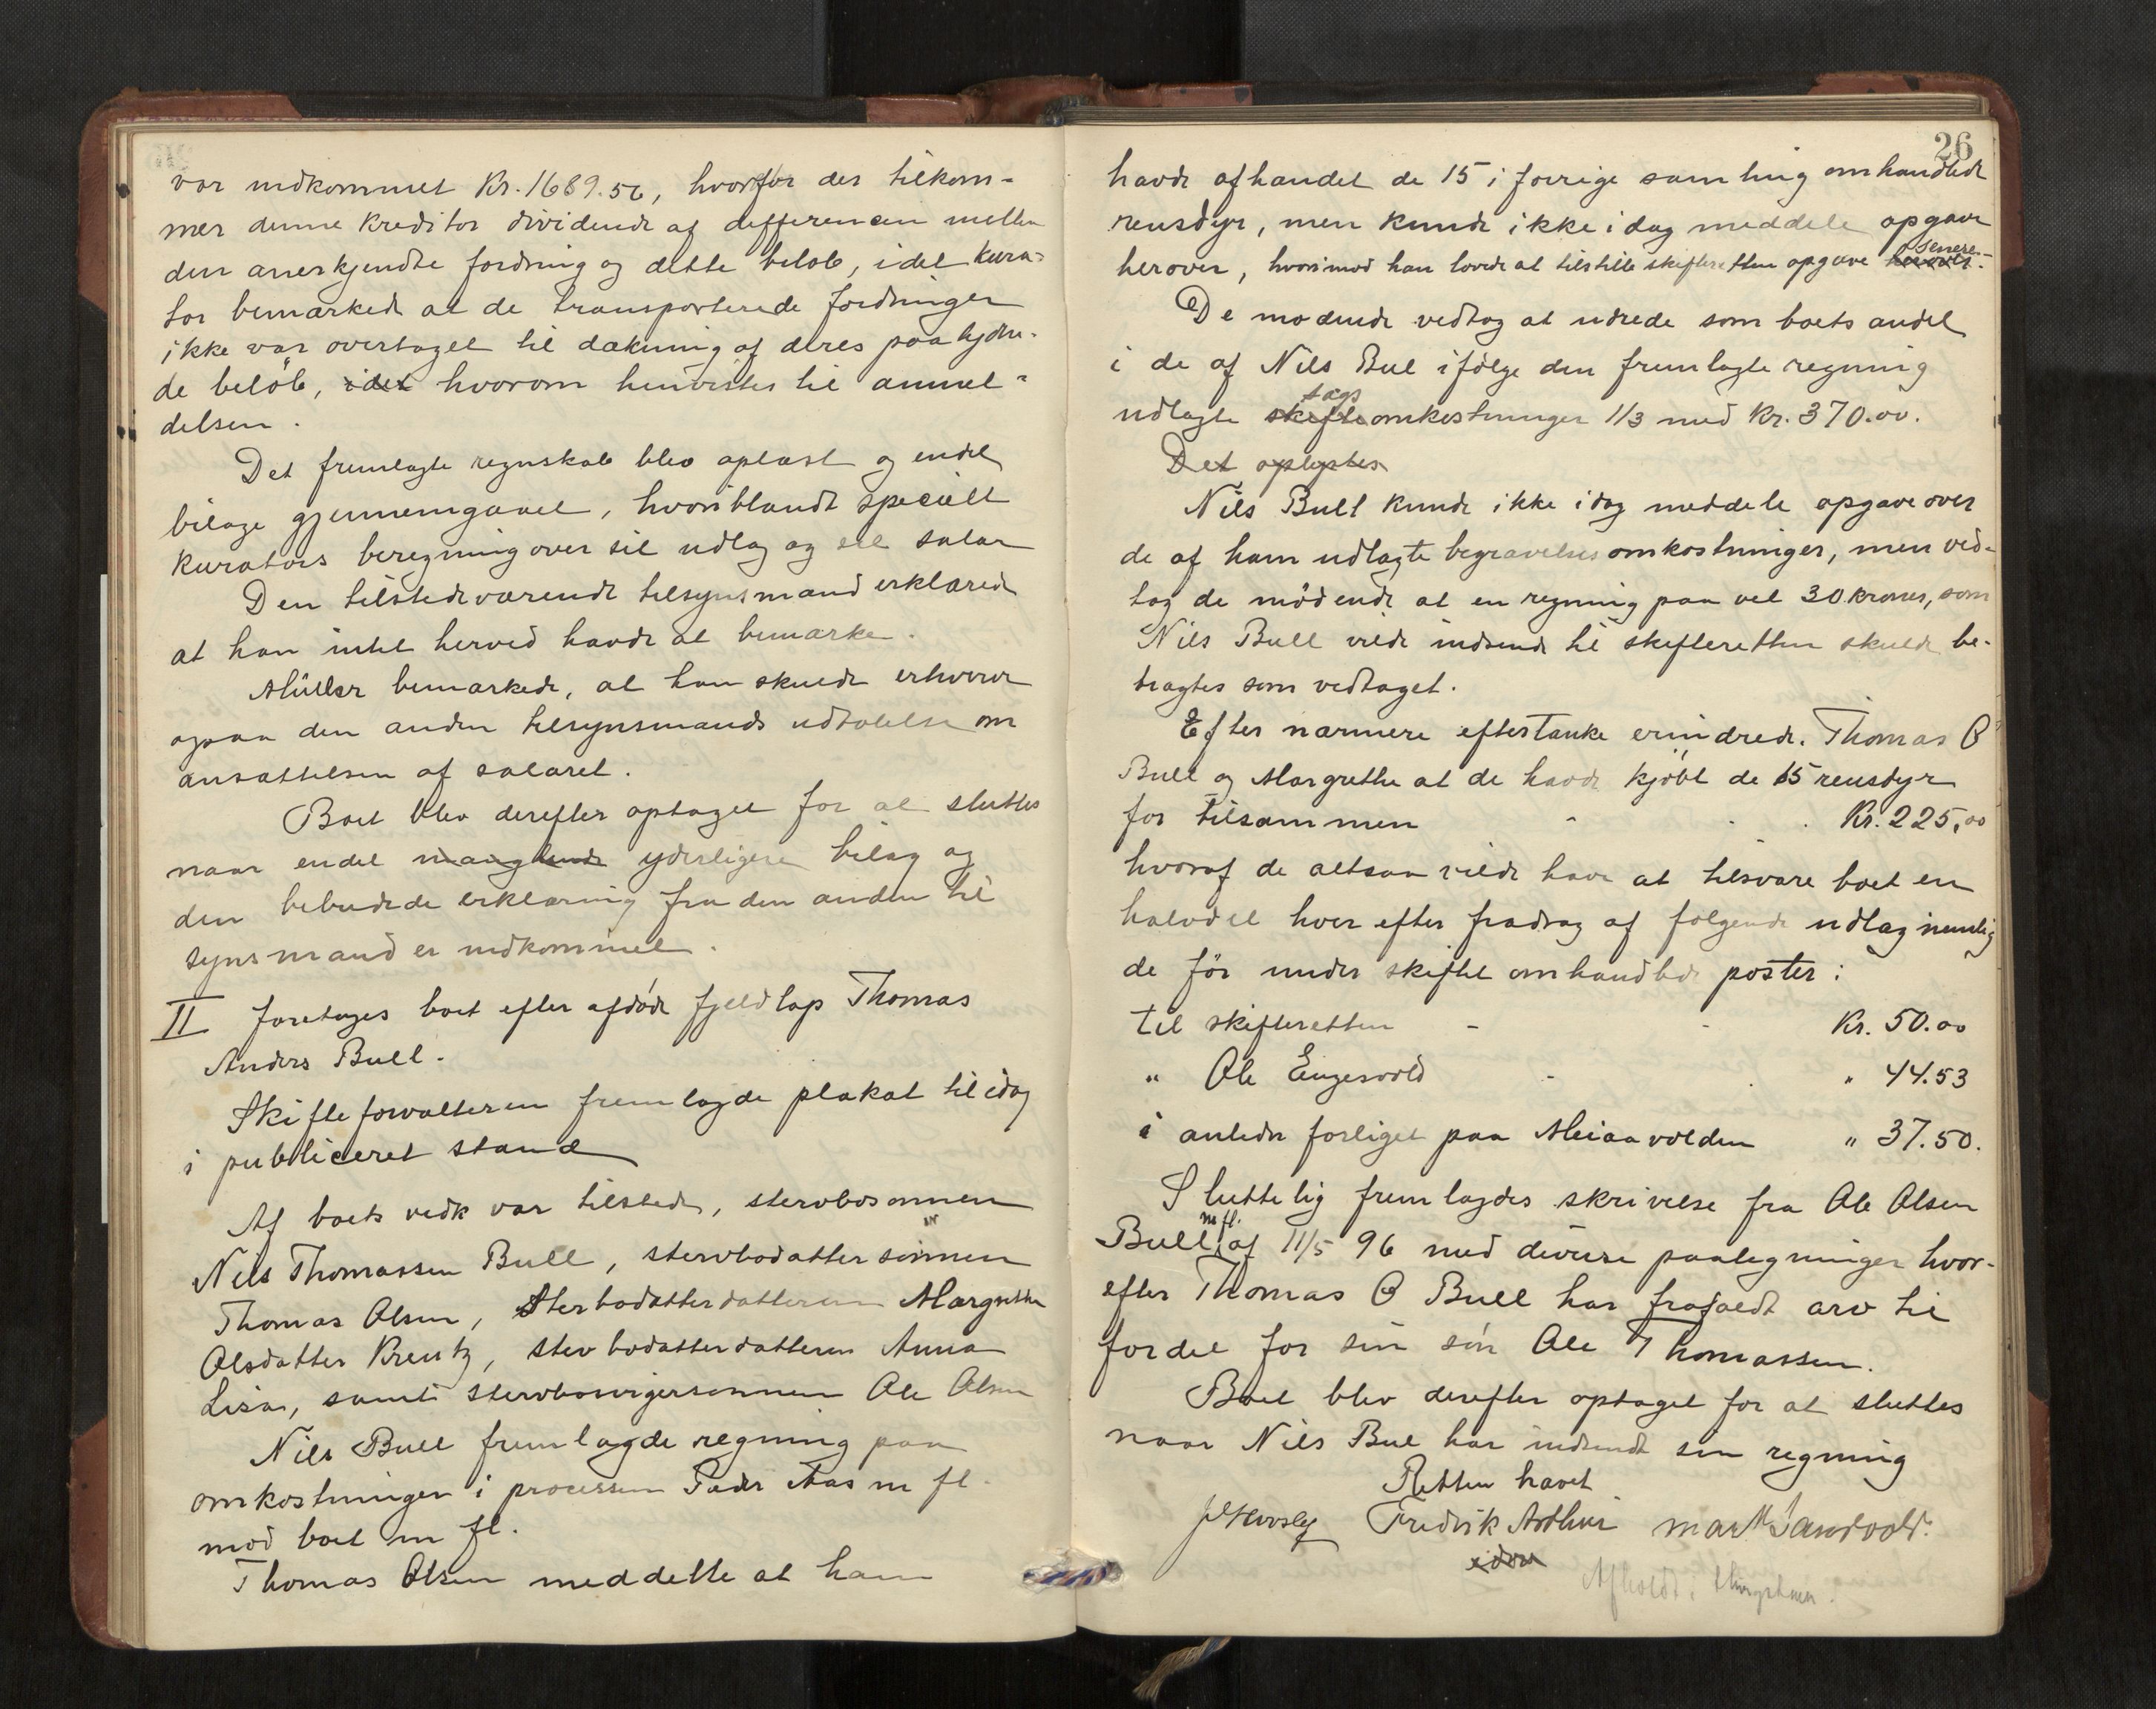 var indkommet Kr. 1689.56, hvorfor der tilkom-
mer denne kreditor dividende af differencen mellem
den anerkjendte fordring og dette beløb, idet kura-
tor bemærkede at de transporterede fordringer
ikke var overtaget til dækning af deres paalyden-
de beløb, idet hvorom henvistes til anmel-
delsen.
Det fremlagte regnskab blev oplæst og endel
bilage gjennemgaaet, hvoriblandt specielt
kurators beregning over sit udlæg og sit salær
Den tilstedeværende tilsynsmand erklærede
at han intet herved havde at bemærke.
Müller bemærkede, at han skulde erhverve
ogsaa den anden tilsynsmands udtalelse om
ansættelsen af salæret.
Boet blev derefter optaget for at sluttes
naar endel manglende yderligere bilag og
den bebudede erklæring fra den anden til
synsmand er indkommet.
II foretages boet efter afdøde fjeldlap Thomas
Anders Bull.
Skifteforvalteren fremlagde plakat til idag
i publiceret stand
Af boets vedk var tilstede, stervbosønnen
Nils Thomassen Bull, stervbodattersønnen
Thomas Olsen, Sterbodatterdatteren Margrethe
Olsdatter Kreutz, stervbodatterdatteren Anna
Lisa, samt stervbosvigersønnen Ole Olsen
Nils Bull fremlagde regning paa
omkostninger i processen Peder Aas m fl.
mod boet m fl.
Thomas Olsen meddelte at han
26
havde afhændet de 15 i forrige samling omhandlede
rensdyr, men kunde ikke idag meddele opgave
senere
herover, hvorimod han lovede at tilstille skifteretten opgave herover.
De mødende vedtog at udrede som boets andel
i de af Nils Bul ifølge den fremlagte regning
sags
udlagte skifteomkostninger 1/3 med Kr. 370.00.
Det oplystes
Nils Bull kunde ikke idag meddele opgave over
de af ham udlagte begravelsesomkostninger, men ved-
tog de mødende at en regning paa vel 30 kroner, som
Nils Bull vilde indsende til skifteretten skulde be-
tragtes som vedtaget.
Efter nærmere eftertanke erindrede Thomas O
Bull og Margrethe at de havde kjøbt de 15 rensdyr
for tilsammen - - . Kr. 225,00
hvoraf de altsaa vilde have at tilsvare boet en
halvdel hver efter fradrag af følgende udlæg nemlig
de før under skiftet omhandlede poster:
til skifteretten - - Kr. 50.00
" Ole Engesvold - . " 44.53
i anledn forliget paa Meiaavolden " 37.50.
Sluttelig fremlagdes skrivelse fra Ole Olsen
m fl.
Bull af 11/5 96 med diverse paategninger hvor-
efter Thomas O Bull har frafaldt arv til
fordel for sin søn Ole Thomassen.
Boet blev derefter optaget for at sluttes
naar Nils Bul har indsendt sin regning
Retten hævet
Fredrik Arthur Mart Sandvold.
Afholdt i